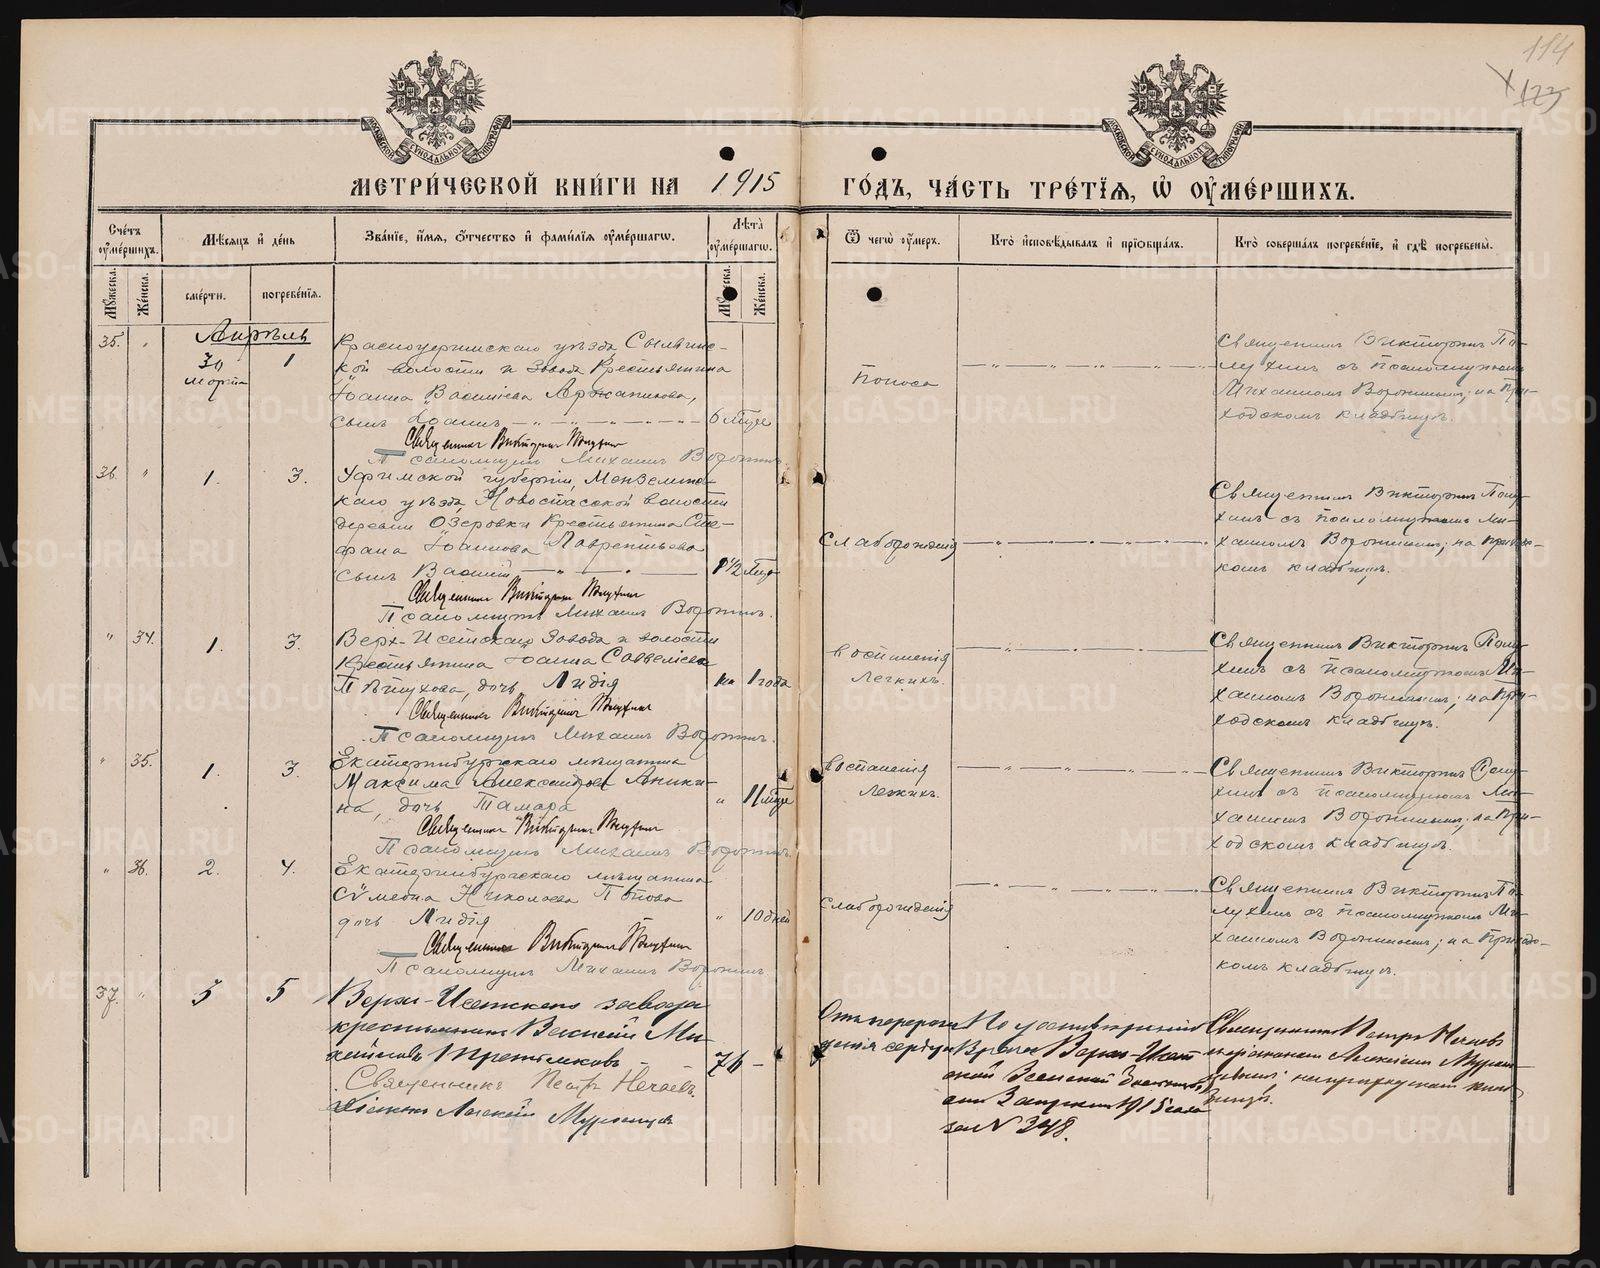 114
123
МОСКОВСКОЙ СѴНОДАЛЬНОЙ ТИПОГРАФІИ
МОСКОВСКОЙ СѴНОДАЛЬНОЙ ТИПОГРАФІИ
МЕТРИ́ЧЕСКОЙ КНИ́ГИ НА 1915 ГО́ДЪ, ЧА́СТЬ ТРЕ́ТІЯ, Ѡ҆ ОУ҆МЕ́РШИХЪ.
Счétъ оу҆ме́ршихъ.
Мꙋ́жеска.
Же́нска.
Мѣ́сяцъ и҆ де́нь
сме́рти.
погребе́нїѧ.
Зва́нїе, и҆́мѧ, ѻ҆́тчество и҆ фами́лїѧ оу҆ме́ршагѡ.
Лѣ́та оу҆ме́ршагѡ.
Мꙋ́жеска.
Же́нска.
Ѿ чегѡ̀ оу҆́меръ.
Кто̀ и҆сповѣ́дывалъ и҆ прїѡбща́лъ.
Кто̀ соверша́лъ погребе́нїе, и҆ гдѣ̀ погребены̀.
Апрѣль
35. "
30 марта
1
Красноуфимскаго уѣзда Сылвинс-
кой волости и завода крестьянина
Іоанна Васильева Аржанникова,
сынъ Іоаннъ
6 мѣс
Священникъ Викторинъ
Псаломщикъ Михаилъ Воронинъ
Поноса
Священникъ Викторинъ По-
лухинъ съ псаломщикомъ
Михаиломъ Воронинымъ; на При-
ходскомъ кладбищѣ.
36. "
1.
3.
Уфимской губерніи, Мензелинс-
каго уѣзда, Новоспасской волости
деревни Озеровки крестьянина Сте-
фана Іоаннова Лаврентьева
сынъ Василій
1 1/2 мѣс
Священникъ Викторинъ
Псаломщикъ Михаилъ Воронинъ.
Слаборожденія
Священникъ Викторинъ Полу-
хинъ съ псаломщикомъ Ми-
хаиломъ Воронинымъ; на приходс-
комъ кладбищѣ.
" 34.
1.
3.
Верх-Исетскаго завода и волости
крестьянина Іоанна Савельева
Пѣтухова, дочь Лидія
1 года
Священникъ Викторинъ
Псаломщикъ Михаилъ Воронинъ.
воспаленія
легкихъ.
Священникъ Викторинъ Полу-
хинъ съ псаломщикомъ Ми-
хаиломъ Воронинымъ; на При-
ходскомъ кладбищѣ.
" 35.
1.
3.
Екатеринбургскаго мѣщанина
Максима Александрова Аники-
на, дочь Тамара
" 11 мѣс
Священникъ Викторинъ
Псаломщикъ Михаилъ Воронинъ.
воспаленія
легкихъ.
Священникъ Викторинъ Полу-
хинъ съ псаломщикомъ Ми-
хаиломъ Воронинымъ; на При-
ходскомъ кладбищѣ.
" 36.
2.
4.
Екатеринбургскаго мѣщанина
Сѵмеона Николаева Попова
дочь Лидія
" 10 дней
Священникъ Викторинъ
Псаломщикъ Михаилъ Воронинъ
Слаборожденія
Священникъ Викторинъ По-
лухинъ съ псаломщикомъ Ми-
хаиломъ Воронинымъ; на Приходс-
комъ кладбищѣ.
37. "
3
5
Верхъ-Исетскаго завода
крестьянинъ Василій Ми-
хайловъ Третьяковъ
76 -
Священникъ Петръ Нечаевъ.
Діаконъ Алексій
Отъ перерож-
денія сердца
По удостовѣренію
врача Верхъ-Исет-
ской Земской больницы
отъ 3 апрѣля 1915 года
за № 348.
Священникъ Петръ Нечаевъ